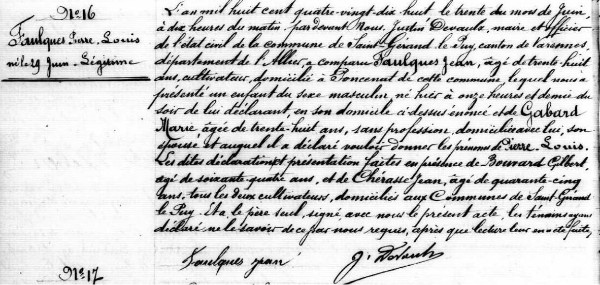 N°. 16
Faulques Pierre-Louis
né le 29 Juin - Légitime
L'an mil huit cent quatre-vingt-dix huit, le trente du mois de Juin,
à dix heures du matin, pardevant Nous, Justin Devaulx, maire et officier
de l'état civil de la commune de Saint-Gérand le Puy, canton de Varennes,
département de l'Allier, a comparu Faulques Jean, âgé de trente-huit
ans, cultivateur, domicilié à Poncenat de cette commune, lequel nous a
présenté un enfant du sexe masculin, né hier à onze heures et demie du
soir de lui déclarant, en son domicile ci dessus énoncé et de Gabard
Marie âgée de trente-huit ans, sans profession, domiciliée avec lui, son
épouse et auquel il a déclaré vouloir donner les prénoms de Pierre-Louis.
Les dites déclaration et présentation faites en présence de Bouvard Gilbert,
agé de soixante-quatre ans, et de Chérasse Jean, agé de quarante-cinq
ans, tous les deux cultivateurs, domiciliés aux Communes de Saint-Gérand
le Puy. Et a, le père seul, signé avec nous le présent acte, les témoins ayant
déclaré ne le savoir de ce par nous requis, après que lecture leur en a été faite,
Faulques jean J. Devaulx
N°. 17